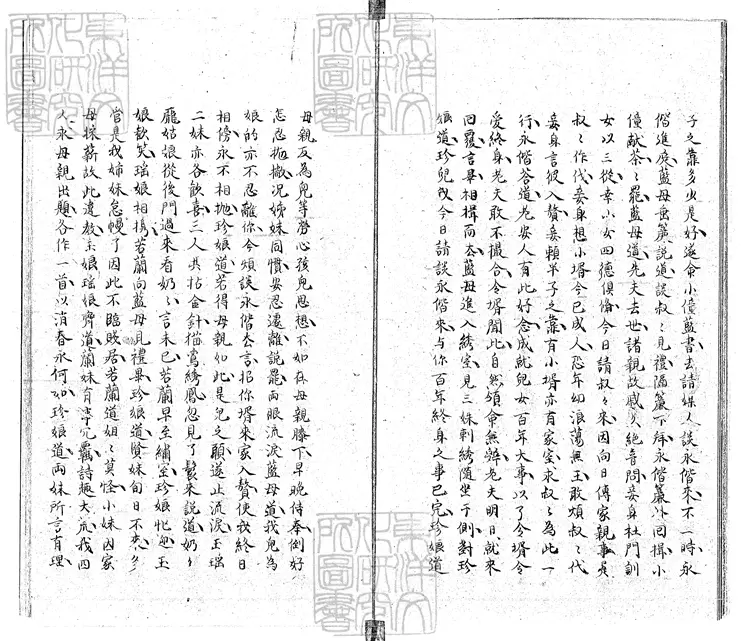 子之靠多少是好遂命小僮藍書去請媒人談永偕來不一時永
偕進庭藍母垂簾說道談叔〻見禮隔簾下拜永偕簾外回揖小
僮献茶〻罷藍母道先夫去世諸親故戚久絶音問妾身杜門訓
女以三從幸小女四德俱脩今日請叔〻來因向日傅家親事是
叔〻作伐妾身想小壻今已成人恐年幼浪蕩無主敢煩叔〻代
妾身言彼入贅妾賴半子之靠有小壻亦有家室求叔〻為此一
行永偕答道老安人有此好念成就兒女百年大事以了令壻令
愛終身老夫敢不撮合令壻聞此自然領命無辤老夫明日就來
回覆言畢相揖而去藍母進入綉室見三妹刺綉隨坐于側對珍
娘道珍兒我今日請談永偕來與你百年終身之事已完珍娘道
母親反為兒等勞心孩兒思想不如在母親膝下早晚侍奉倒好
怎忍抛撇况姊妹同慣安忍遠離說罷两眼流淚藍母道我兒為
娘的亦不忍離你今煩談永偕去言招你壻來家入贅使我終日
相傍永不相抛珍娘道若得母親如此是兒之願遂止流淚玉瑞
二妹亦各歡喜三人共拈金針描鸞綉鳳忽見了鬟來說道奶〻
龐姑娘從後門過來看奶〻言未已若蘭早至繡室珍娘忙迎玉
娘歡笑瑞娘相携若蘭向藍母見禮畢珍娘道賢妹旬日不來多
管是我姊妹怠慢了因此不臨賤居若蘭道姐〻莫怪小妹因家
母採薪故此違教玉娘瑞娘齊道蘭妹有事完覊詩趣大荒我四
人求母親出題各作一首以消春永何如珍娘道两妹所言有理